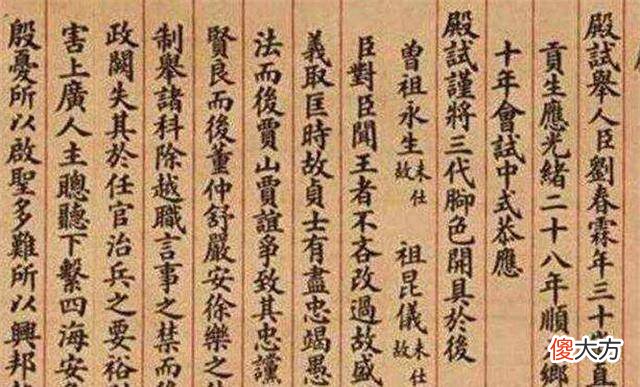 殿試舉人臣劉春霖年三十歲直
貢生應光緒二十八年順鄉
十年會試中式恭應
殿試謹將三代腳色開具於後
曾祖永生未仕故 祖昆儀未仕故
臣對臣聞王者不吝改過故盛
義取匡時故貞士有盡忠竭愚
法而後賈山賈誼爭致其忠讜
賢良而後董仲舒嚴安徐樂之
制舉諸科除越職言事之禁而
政闕失其於任官治兵之要裕
害上廣人主聰聽下繫四海安
殷憂所以啟聖多難所以興邦
傻大方